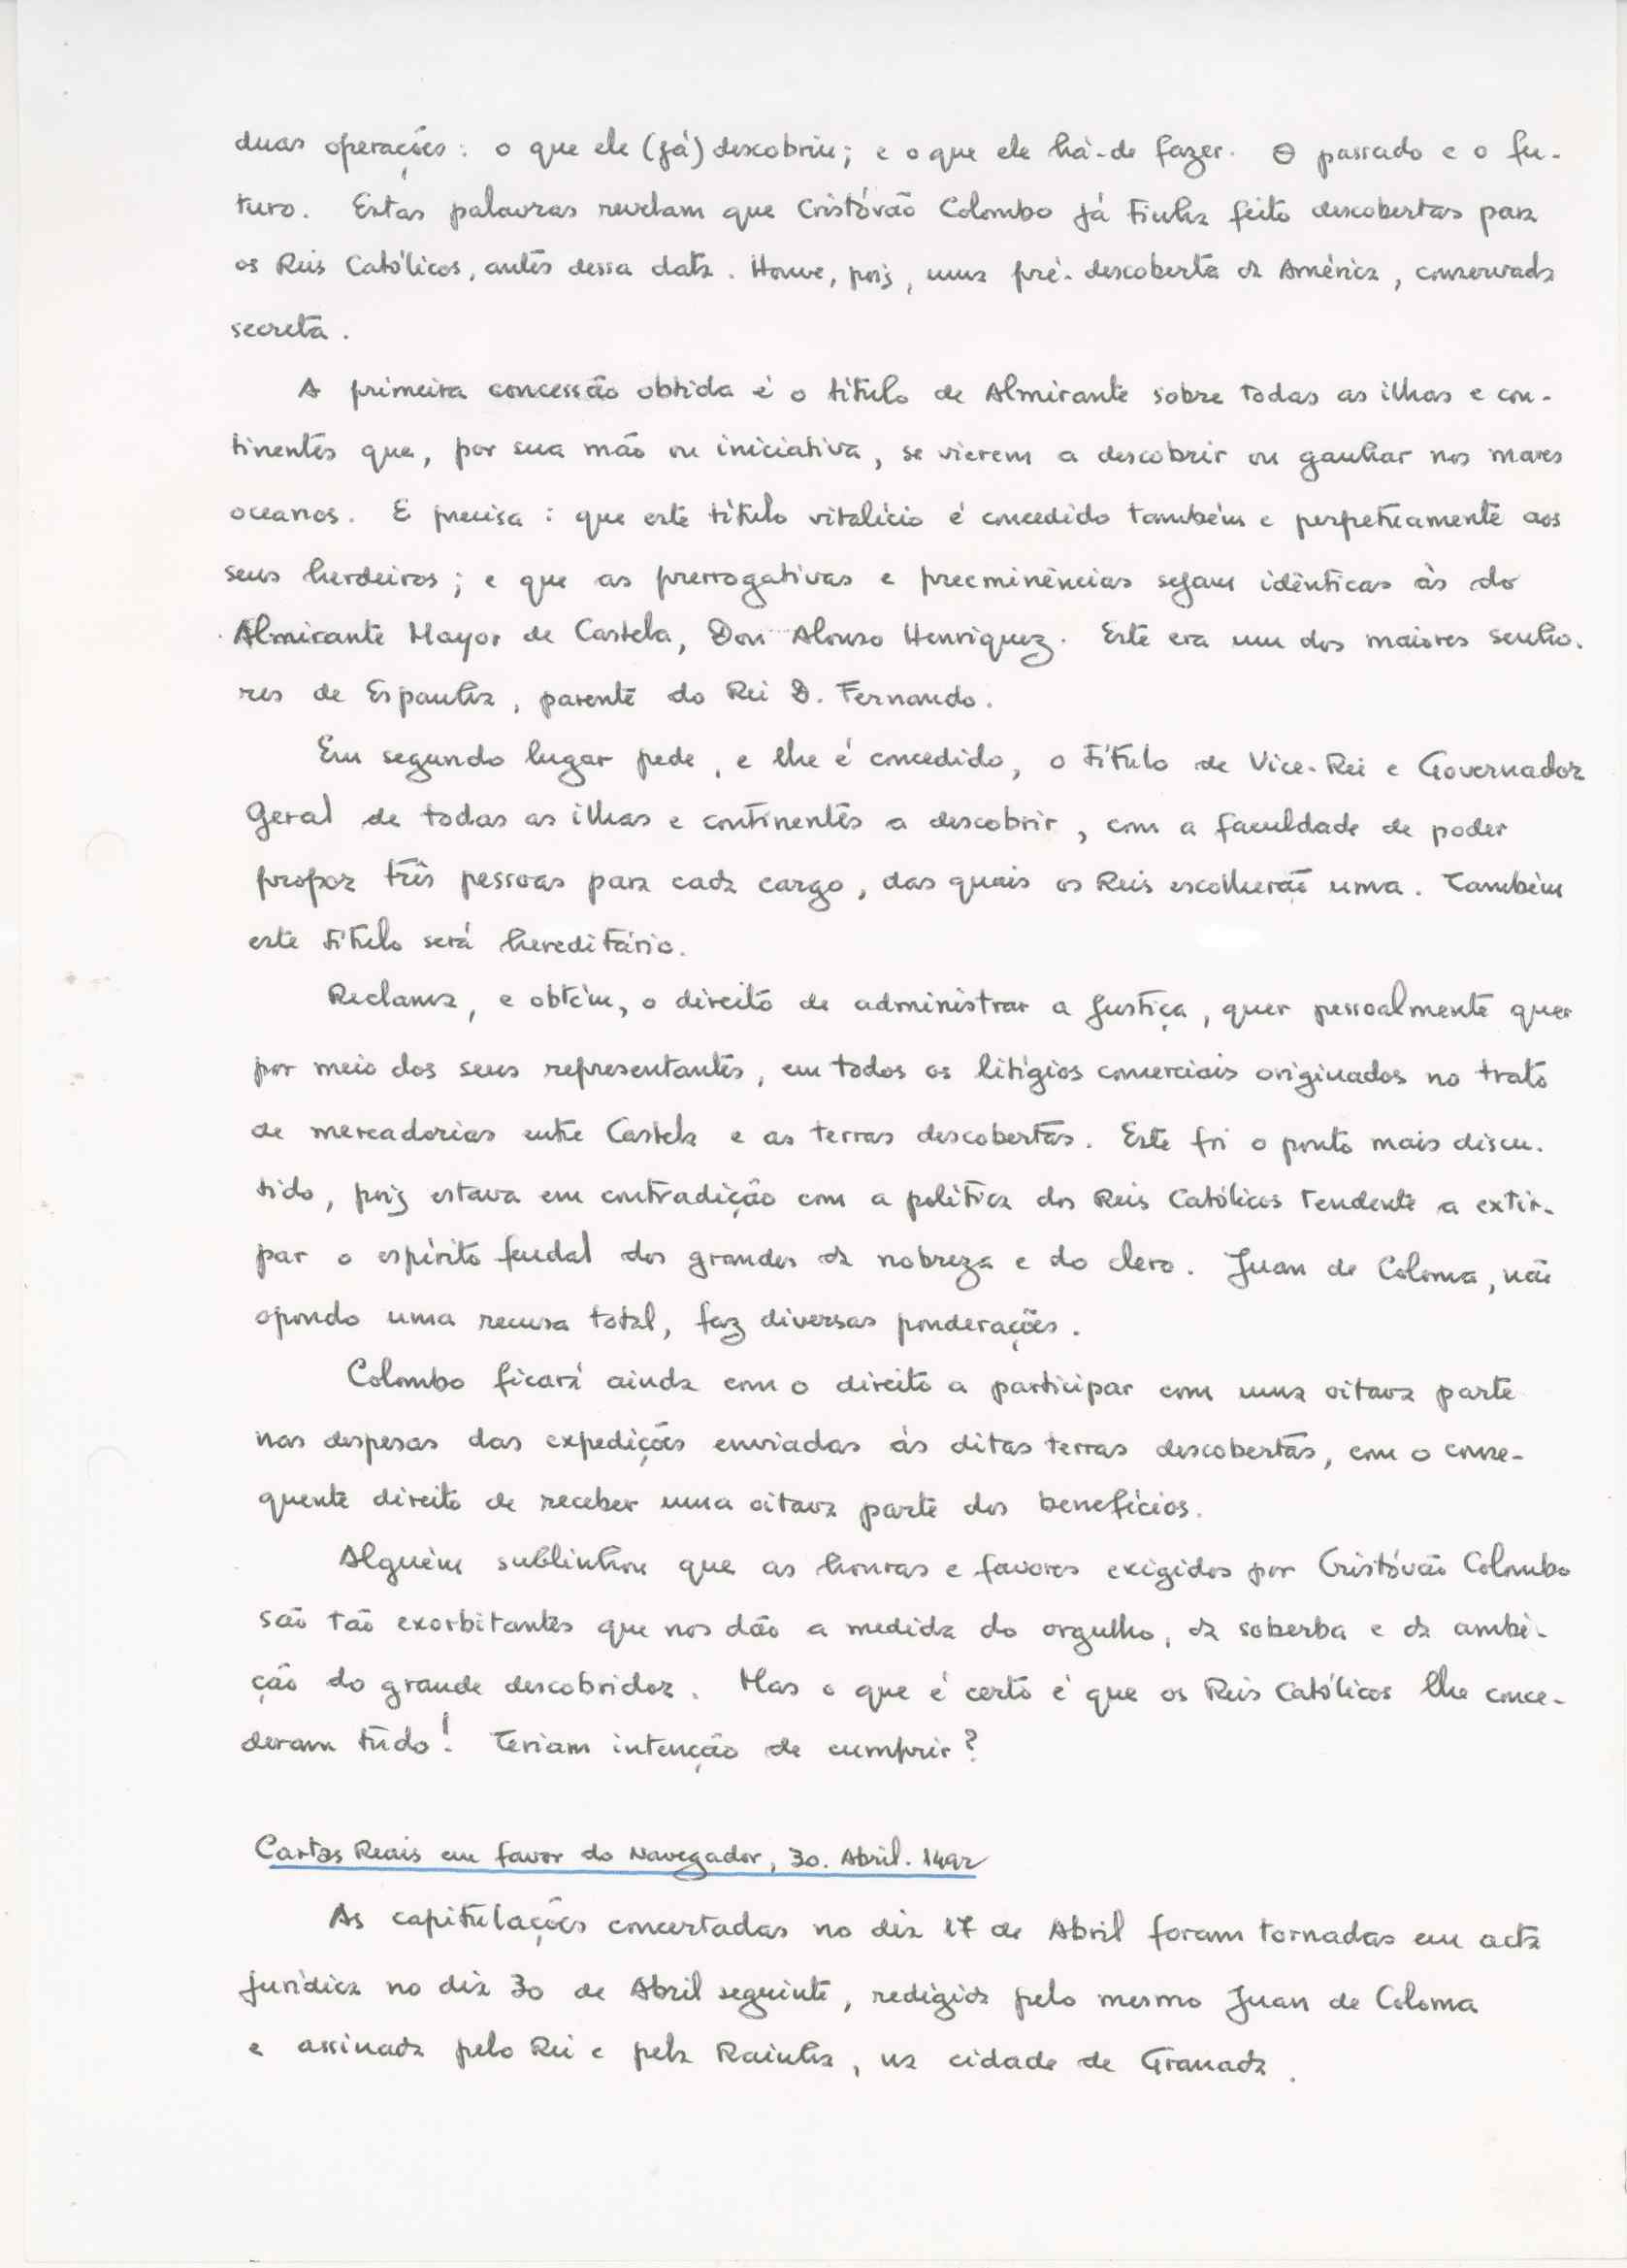 duas operações: o que ele (já) descobriu; e o que ele há-de fazer. O passado e o fu-
turo. Estas palavras revelam que Cristóvão Colombo já tinha feito descobertas para
os Reis Católicos, antes dessa data. Houve, pois, uma pré-descoberta da América, conservada
secreta.
A primeira concessão obtida é o título de Almirante sobre todas as ilhas e con-
tinentes que, por sua mão ou iniciativa, se vierem a descobrir ou ganhar nos mares
oceanos. E precisa: que este título vitalício é concedido também e perpetuamente aos
seus herdeiros; e que as prerrogativas e preeminências sejam idênticas às do
Almirante Mayor de Castela, Don Alonso Henriquez. Este era um dos maiores senho-
res de Espanha, parente do Rei D. Fernando.
Em segundo lugar pede, e lhe é concedido, o título de Vice-Rei e Governador
Geral de todas as ilhas e continentes a descobrir, com a faculdade de poder
propor três pessoas para cada cargo, das quais os Reis escolherão uma. Também
este título será hereditário.
Reclama, e obtém, o direito de administrar a justiça, quer pessoalmente quer
por meio dos seus representantes, em todos os litígios comerciais originados no trato
de mercadorias entre Castela e as terras descobertas. Este foi o ponto mais discu-
tido, pois estava em contradição com a política dos Reis Católicos tendente a extir-
par o espírito feudal dos grandes da nobreza e do clero. Juan de Coloma, não
opondo uma recusa total, faz diversas ponderações.
Colombo ficará ainda com o direito a participar com uma oitava parte
nas despesas das expedições enviadas às ditas terras descobertas, com o conse-
quente direito de receber uma oitava parte dos benefícios.
Alguém sublinhou que as honras e favores exigidos por Cristóvão Colombo
são tão exorbitantes que nos dão a medida do orgulho, da soberba e da ambi-
ção do grande descobridor. Mas o que é certo é que os Reis Católicos lhe conce-
deram tudo! Teriam intenção de cumprir?
Cartas Reais em favor do Navegador, 30. Abril. 1492
As capitulações concertadas no dia 17 de Abril foram tornadas em acta
jurídica no dia 30 de Abril seguinte, redigida pelo mesmo Juan de Coloma
e assinada pelo Rei e pela Rainha, na cidade de Granada.